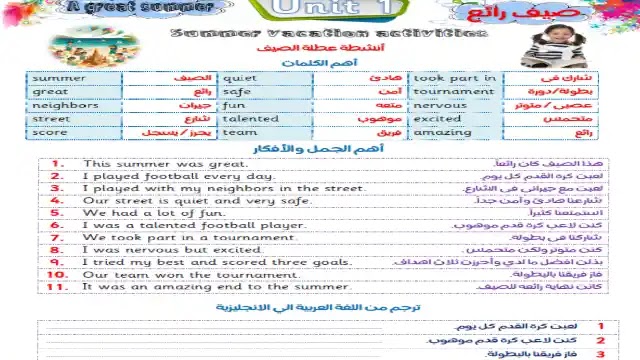 A great summer Unit 1 صيف رائع
Summer vacation activities
أنشطة عطلة الصيف
أهم الكلمات
summer الصيف quiet هادئ took part in شارك فى
great رائع safe آمن tournament بطولة/دورة
neighbors جيران fun متعه nervous عصبى / متوتر
street شارع talented موهوب excited متحمس
score يحرز/ يسجل team فريق amazing رائع
أهم الجمل والأفكار
1. This summer was great. هذا الصيف كان رائعاً.
2. I played football every day. لعبت كرة القدم كل يوم.
3. I played with my neighbors in the street. لعبت مع جيرانى فى الشارع.
4. Our street is quiet and very safe. شارعنا هادئ و آمن جداً.
5. We had a lot of fun. استمتعنا كثيراً.
6. I was a talented football player. كنت لاعب كرة قدم موهوب.
7. We took part in a tournament. شاركنا فى بطولة.
8. I was nervous but excited. كنت متوتر ولكن متحمس.
9. I tried my best and scored three goals. بذلت افضل ما لدي وأحرزت ثلاث اهداف.
10. Our team won the tournament. فاز فريقنا بالبطولة.
11. It was an amazing end to the summer. كانت نهاية رائعه للصيف.
ترجم من اللغة العربية الي الانجليزية
1 لعبت كرة القدم كل يوم.
2 كنت لاعب كرة قدم موهوب.
3 فاز فريقنا بالبطولة.